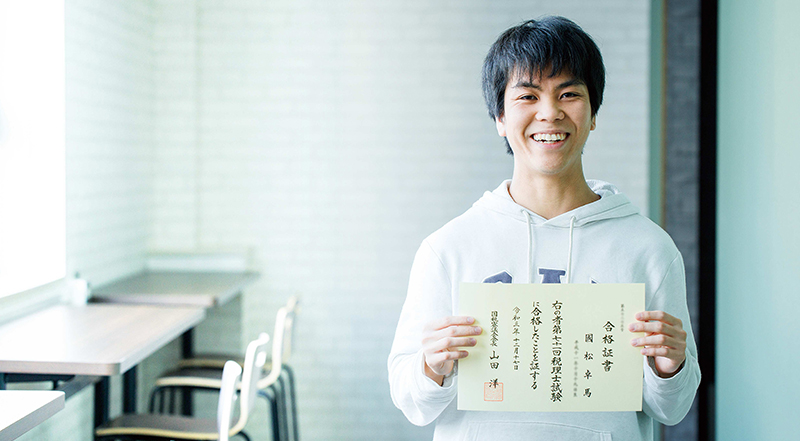 合格証書
國松卓馬
右の者第七十一回税理士試験
に合格したことを証する
令和三年十二月十日
国税審議会会長 山田洋